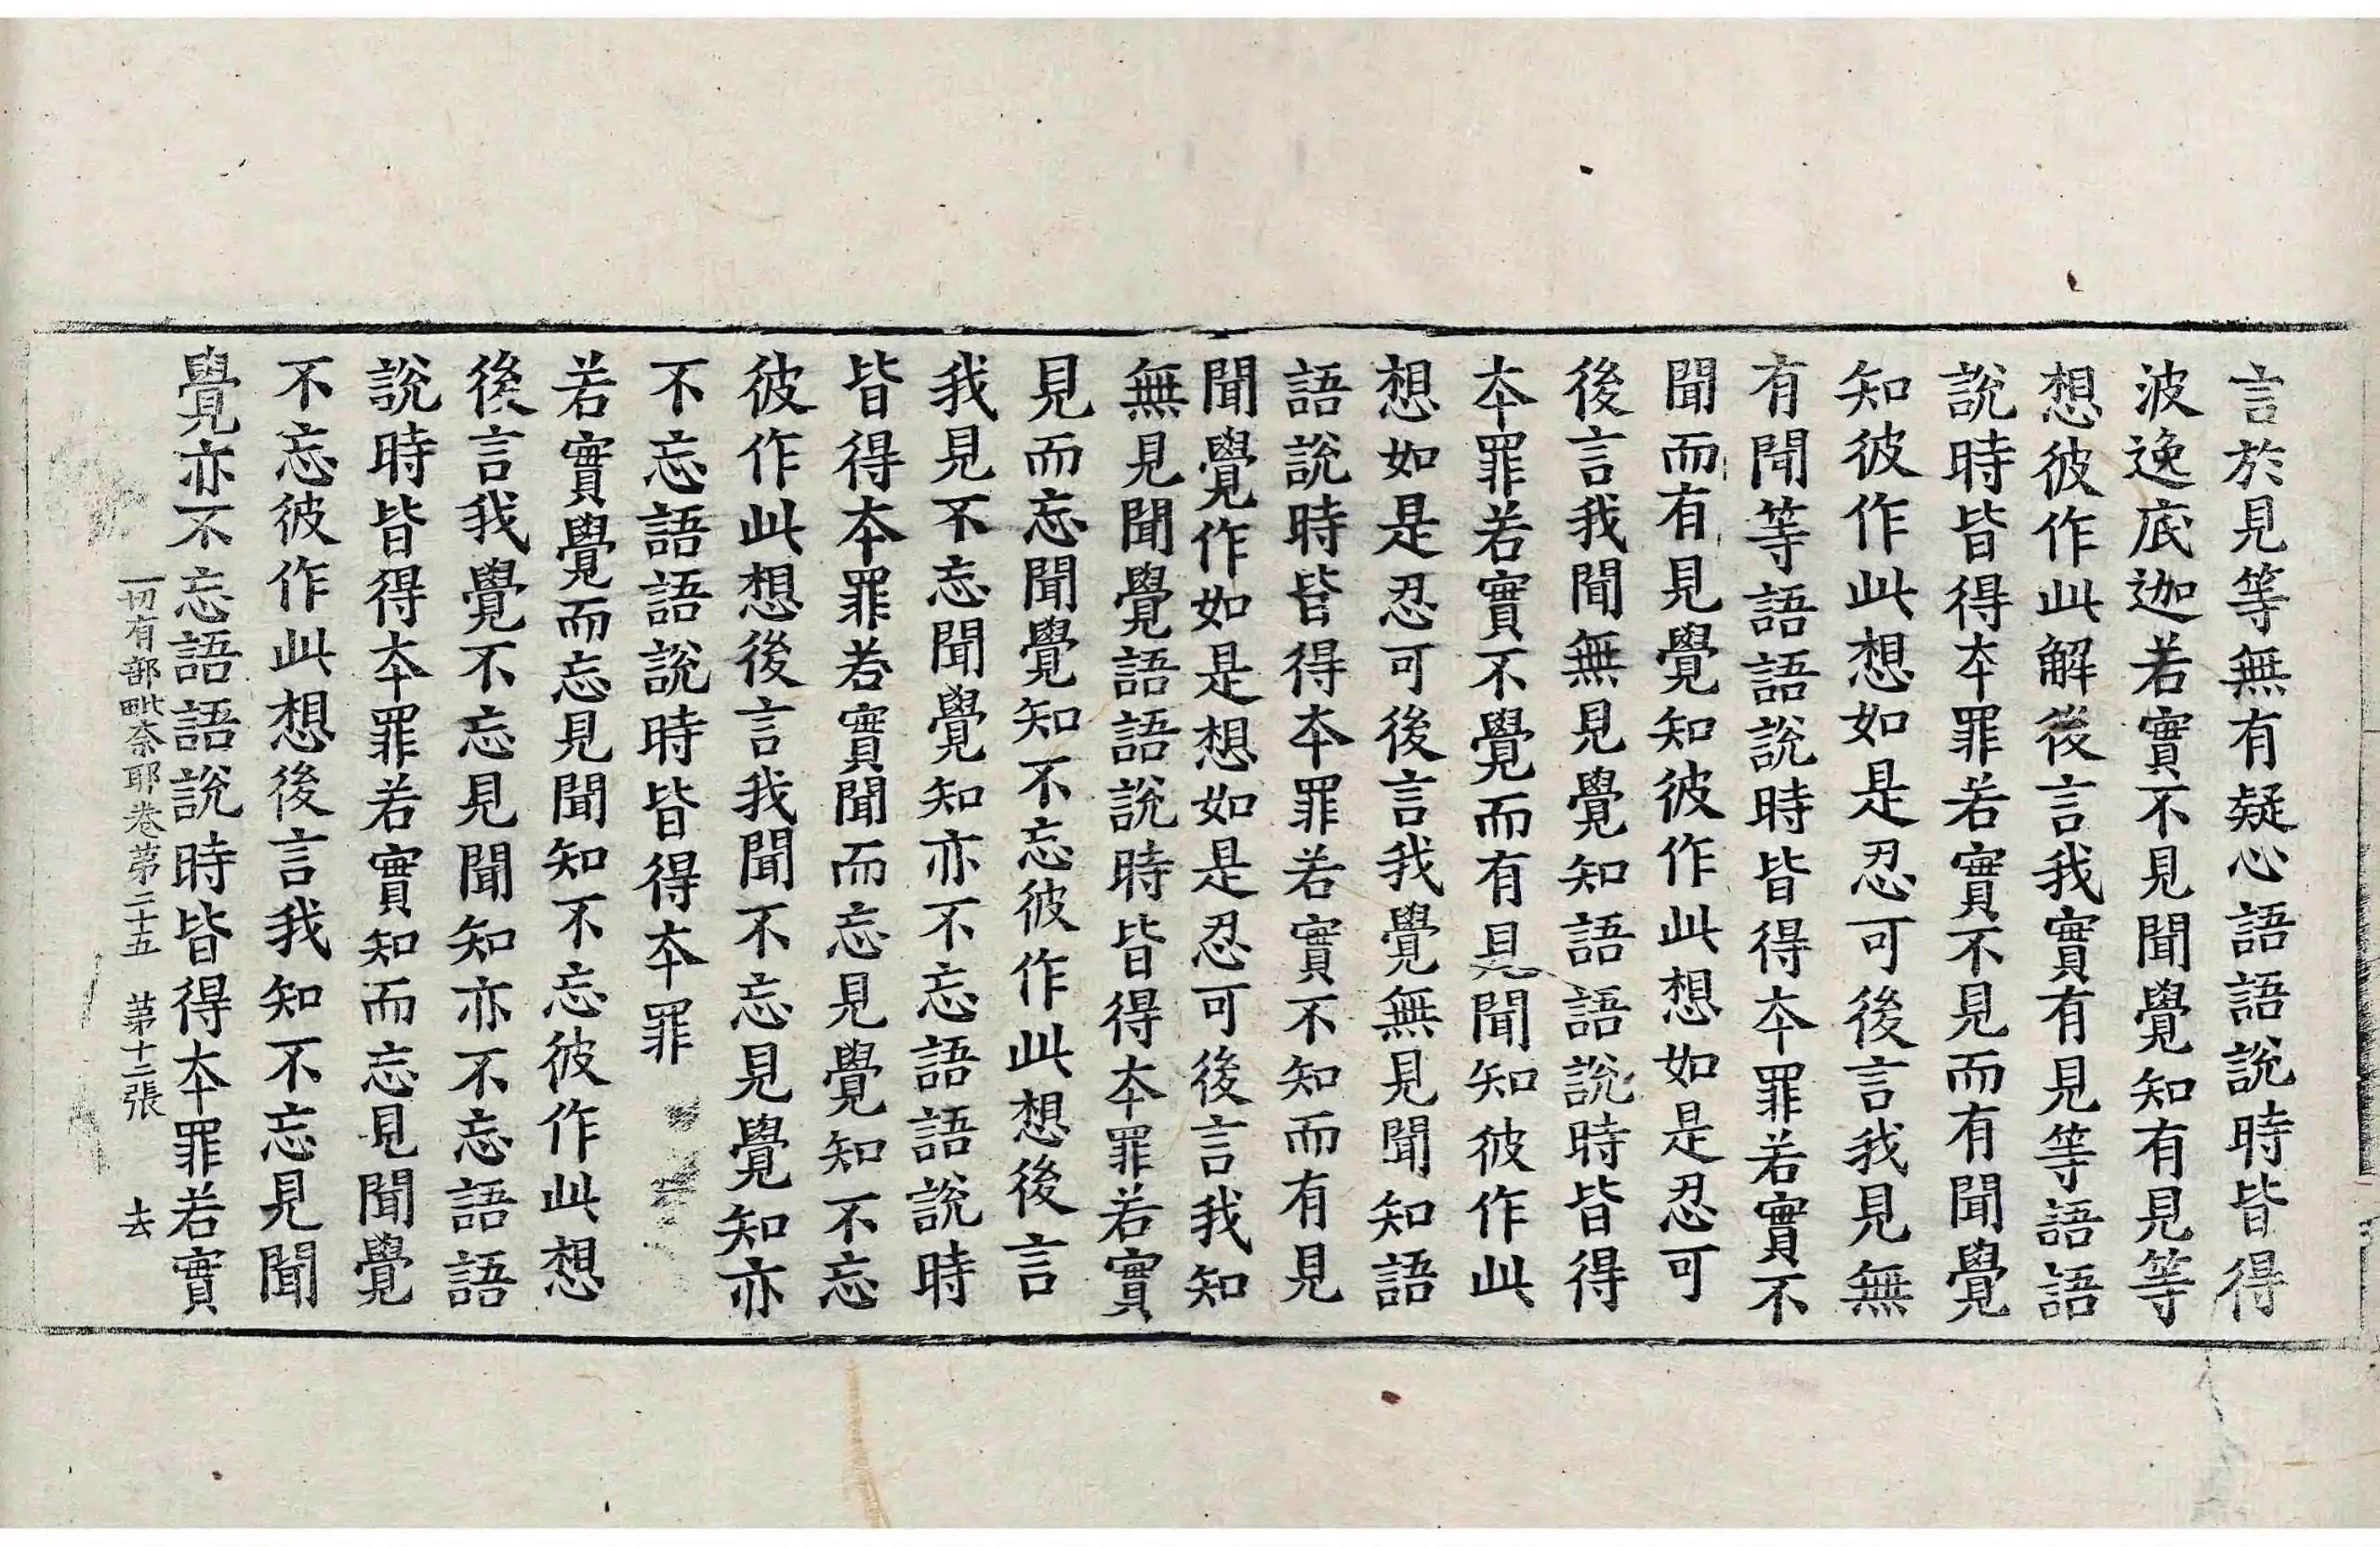 言於見等無有疑心語語說時皆得
波逸底迦若實不見聞覺知有見等
想彼作此解後言我實有見等語語
說時皆得本罪若實不見而有聞覺
知彼作此想如是忍可後言我見無
有聞等語語說時皆得本罪若實不
聞而有見覺知彼作此想如是忍可
後言我聞無見覺知語語說時皆得
本罪若實不覺而有見聞知彼作此
想如是忍可後言我覺無見聞知語
語說時皆得本罪若實不知而有見
聞覺作如是想如是忍可後言我知
無見聞覺語語說時皆得本罪若實
見而忘聞覺知不忘彼作此想後言
我見不忘聞覺知亦不忘語語說時
皆得本罪若實聞而忘見覺知不忘
彼作此想後言我聞不忘見覺知亦
不忘語語說時皆得本罪
若實覺而忘見聞知不忘彼作此想
後言我覺不忘見聞知亦不忘語語
說時皆得本罪若實知而忘見聞覺
不忘彼作此想後言我知不忘見聞
覺亦不忘語語說時皆得本罪若實
一切有部毗奈耶卷第二十五 第十二張 去